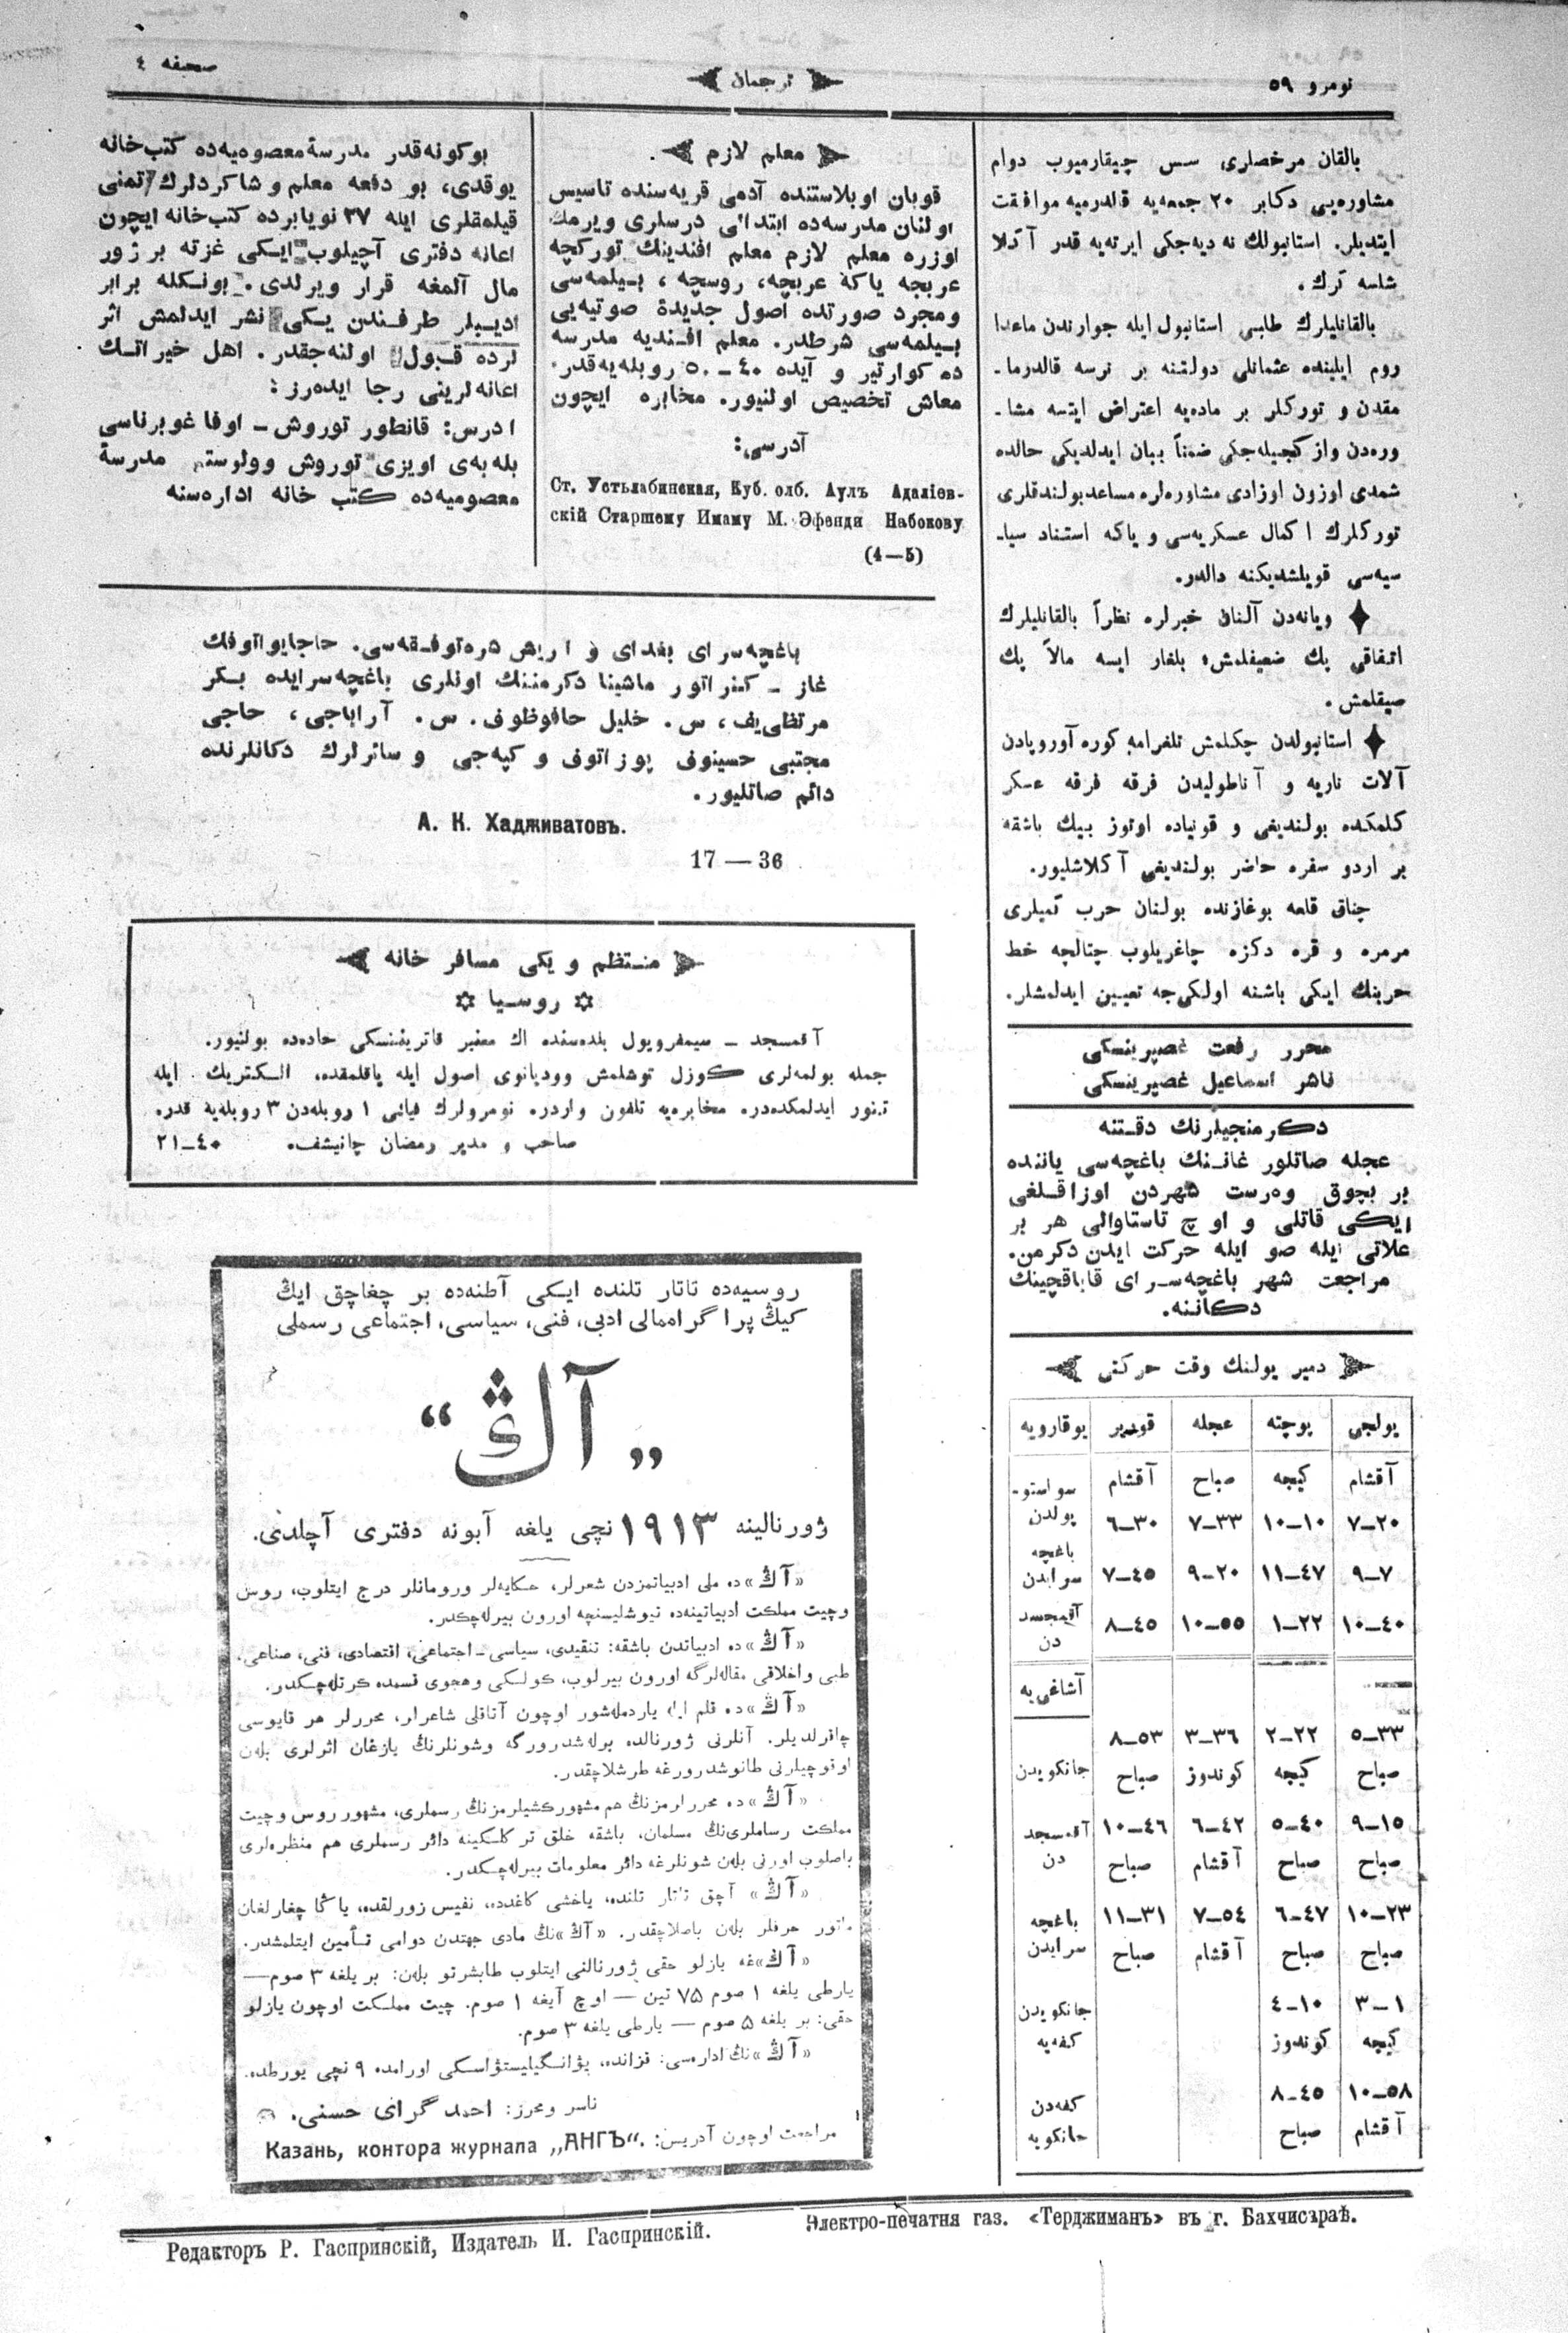 نومرو ٥٩
ترجمان
صحيفه ٤
بالقان مرخصلرى سس چيقارميوب دوام
مشاوره‌يى دكابر ٢٠ جمعه‌يه قالدرميه موافقت
ايتديلر. استانبولك نه ديه‌جكى ايرته‌يه قدر آڭلا
شلسه كرك.
بالقانليلرك طلبى استانبول ايله جوارندن ماعدا
روم ايلينده عثمانلى دولتنه بر نرسه قالدرما-
مقدن و توركلر بر ماده‌يه اعتراض ايتسه مشا-
وره‌دن واز كچيله‌جكى ضمناً بيان ايدلديكى حالده
شمدى اوزون اوزادى مشاوره‌لره مساعد بولندقلرى
توركلرك اكمال عسكريه‌سى و ياكه استناد سيا-
سيه‌سى قويلشديكنه دالدر.
ويانه‌دن آلنان خبرلره نظراً بالقانليلرك
اتفاقى پك ضعيفلمش، بلغار ايسه مالاً پك
صيقلمش.
استانبولدن چكلمش تلغرامه كوره آوروپادن
آلات ناريه و آناطوليدن فرقه فرقه عسكر
كلمكده بولنديغى و قونياده اوتوز بيك باشقه
بر اردو سفره حاضر بولنديغى آكلاشليور.
چناق قلعه بوغازنده بولنان حرب كميلرى
مرمره و قره دكزه چاغريلوب چتالجه خط
حربنك ايكى باشنه اولكى‌جه تعيين ايدلمشلر.
محرر رفعت غصپرينسكى
ناشر اسماعيل غصپرينسكى
دكرمنجيلرنك دقتنه
عجله صاتلور غاننك باغچه‌سى ياننده
بر بچوق وه‌رست شهردن اوزاقلغى
ايكى قاتلى و اوچ تاستاوالى هر بر
علاتى ايله صو ايله حركت ايدن دكرمن.
مراجعت شهر باغچه‌سراى قاباقچينك
دكاننه.
دمير يولنك وقت حركتى
يولجى پوچته عجله قوديير يوقارويه
آقشام كيجه صباح آقشام سواستو-
٧–٢٠ ١٠–١٠ ٧–٣٣ ٦–٣٠ پولدن
٩–٧ ١١–٤٧ ٩–٢٠ ٧–٤٥ باغچه سرايدن
١٠–٤٠ ١–٢٢ ١٠–٥٥ ٨–٤٥ آقمجسد دن
آشاغى‌يه
٥–٣٣ ٢–٢٢ ٣–٣٦ ٨–٥٣
صباح كيجه كوندوز صباح جانكويدن
٩–١٥ ٥–٤٠ ٦–٤٢ ١٠–٤٦ آقمسجد
صباح صباح آقشام صباح دن
١٠–٢٣ ٦–٤٧ ٧–٥٤ ١١–٣١ باغچه
صباح صباح آقشام صباح سرايدن
٣–١ ٤–١٠ جانكويدن
كيجه كوندوز كفه‌يه
١٠–٥٨ ٨–٤٥ كفه‌دن
آقشام صباح جانكويه
معلم لازم
قوبان اوبلاستنده آدمى قريه‌سنده تاسيس
اولنان مدرسه‌ده ابتدائى درسلرى ويرمك
اوزره معلم لازم معلم افندينك توركچه
عربجه ياكه عربچه، روسچه، بيلمه‌سى
ومجرد صورتده اصول جديدۀ صوتيه‌يى
بيلمه‌سى شرطدر. معلم افنديه مدرسه
ده كوارتير و آيده ٤٠–٥٠ روبله‌يه‌قدر
معاش تخصيص اولنيور. مخابره ايچون
آدرسى:
Ст. Устьлабинская, Куб. олб. Аулъ Адаліев-
скій Старшему Имаму М. Эфенди Набокову
(4—5)
بوكونه‌قدر مدرسۀ معصوميه‌ده كتب‌خانه
يوقدى، بو دفعه معلم و شاكردلرك تمنى
قيلمقلرى ايله ٢٧ نويابرده كتب‌خانه ايچون
اعانه دفترى آچيلوب ايكى غزته بر ژور
مال آلمغه قرار ويرلدى. بونكله برابر
اديبلر طرفندن يكى نشر ايدلمش اثر
لرده قبول اولنه‌جقدر. اهل خيراتنك
اعانه‌لرينى رجا ايده‌رز:
ادرس: قانطور توروش – اوفا غوبرناسى
بله‌به‌ى اويزى توروش وولوستى مدرسۀ
معصوميه‌ده كتب خانه اداره‌سنه
باغچه‌سراى بغداى و اريش شره‌توفقه‌سى. حاجايواتوفك
غاز – كنراتور ماشينا دكرمننك اونلرى باغچه‌سرايده بكر
مرتظى‌يف، س. خليل حافوظوف. س. آراباجى، حاجى
مجتبى حسينوف پوزاتوف و كپه‌جى و سائرلرك دكانلرنده
دائم صاتليور.
А. Н. Хадживатовъ.
17—36
منتظم و يكى مسافر خانه
روسيا
آقمسجد – سيمفروپول بلده‌سنده اك معتبر قاتريننسكى جاده‌ده بولنيور.
جمله بولمه‌لرى كوزل توشلمش وودياناوى اصول ايله ياقلمقده، الكتريك ايله
تنور ايدلمكده‌در. مخابره‌يه تلفون واردر. نومرولرك فيائى ١ روبله‌دن ٣ روبله‌يه قدر.
صاحب و مدير رمضان چانيشف. ٤٠–٢١
روسيه‌ده تاتار تلنده ايكى آطنه‌ده بر چغاچق ايڭ
كيڭ پراگراممالى ادبى، فنى، سياسى، اجتماعى رسملى
„آڭ“
ژورنالينه ١٩١٣ نچى يلغه آبونه دفترى آچلدى.
«آڭ» ده ملى ادبياتمزدن شعرلر، حكايه‌لر ورومانلر درج ايتلوب، روس
وچيت مملكت ادبياتينه‌ده تيوشليسنچه اورون بيرله‌چكدر.
«آڭ» ده ادبياتدن باشقه: تنقيدى، سياسى – اجتماعى، اقتصادى، فنى، صناعى،
طبى واخلاقى مقاله‌لرگه اورون بيرلوب، كولكى وهجوى قسمده كرتله‌چكدر.
«آڭ» ده قلم ايله ياردمله‌شور اوچون آتاقلى شاعرلر، محررلر هر قايوسى
چاقرلديلر. آنلرنى ژورنالده برله‌شدرورگه وشونلرنڭ يازغان اثرلرى بله‌ن
اوقوچيلرنى طانوشدرورغه طرشلاچقدر.
«آڭ» ده محررلرمزنڭ هم مشهور كشيلرمزنڭ رسملرى، مشهور روس وچيت
مملكت رساملرى‌نڭ مسلمان، باشقه خلق تركلكينه دائر رسملرى هم منظره‌لرى
باصلوب اورنى بله‌ن شونلرغه دائر معلومات بيرله‌چكدر.
«آڭ» آچق تاتار تلنده، ياخشى كاغدده، نفيس زورلقده، ياڭا چغارلغان
ماتور حرفلر بله‌ن باصلاچقدر. «آڭ»نڭ مادى جهتدن دوامى تأمين ايتلمشدر.
«آڭ»غه يازلو حقى ژورنالنى ايتلوب طابشرتو بله‌ن: بر يلغه ٣ صوم—
يارطى يلغه ١ صوم ٧٥ تين — اوچ آيغه ١ صوم. چيت مملكت اوچون يازلو
حقى: بر يلغه ٥ صوم — يارطى يلغه ٣ صوم.
«آڭ»نڭ اداره‌سى: قزانده، يۋانگيليستۋاسكى اورامده ٩ نچى يورطده.
ناشر ومحرر: احمد گراى حسنى.
مراجعت اوچون آدريس: Казань, контора журнала „АНГЪ“.
Редакторъ Р. Гаспринскій, Издатель И. Гаспринскій.
Электро-печатня газ. «Терджиманъ» въ г. Бахчисараѣ.